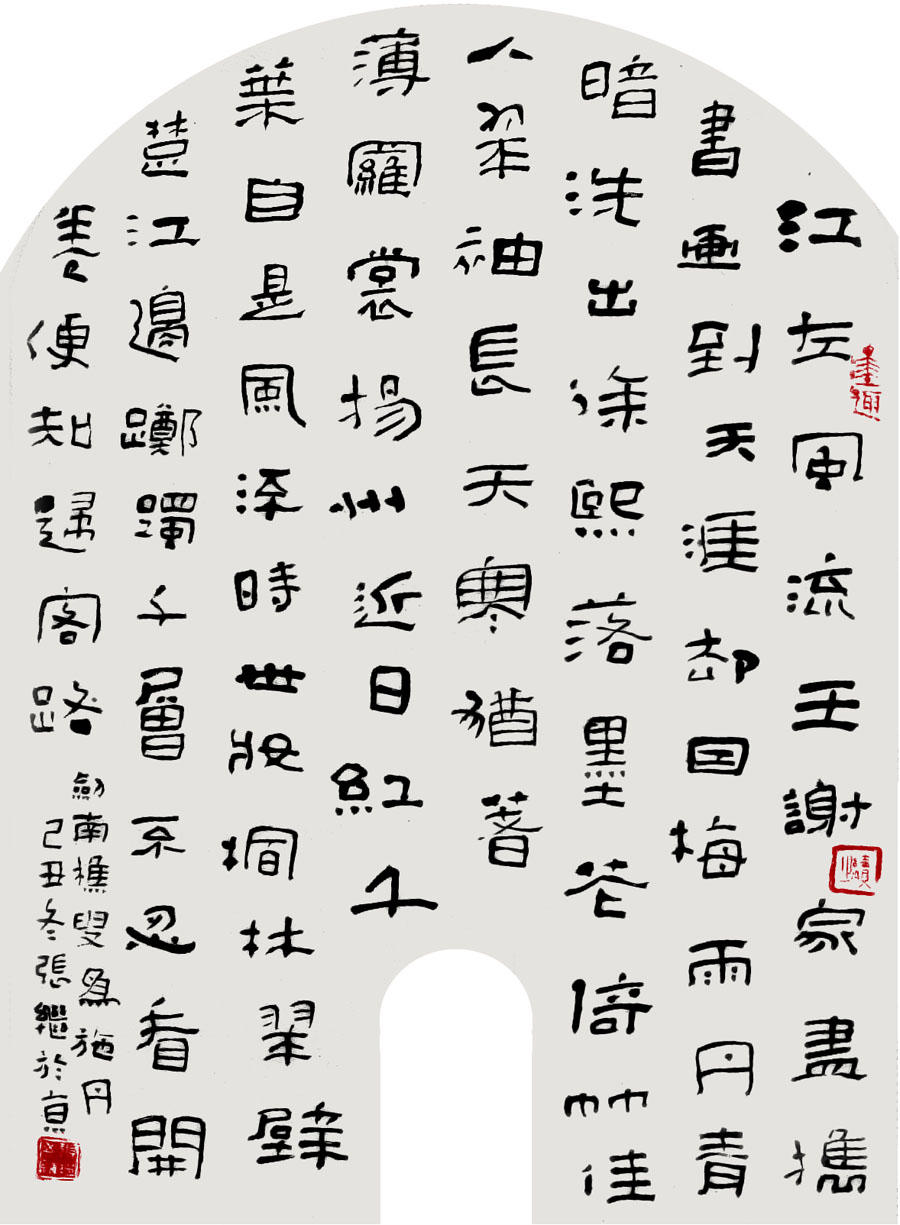 江左風流王謝家盡攜
書畫到天涯却因梅雨丹青
暗洗出徐熙落墨花倚竹佳
人翠袖長天寒猶著
薄羅裳揚州近日紅千
葉自是風流時世妝楓林翠壁
楚江邊躑躅千層不忍看開
卷便知歸客路
劍南樵叟為施丹
己丑冬張繼於京